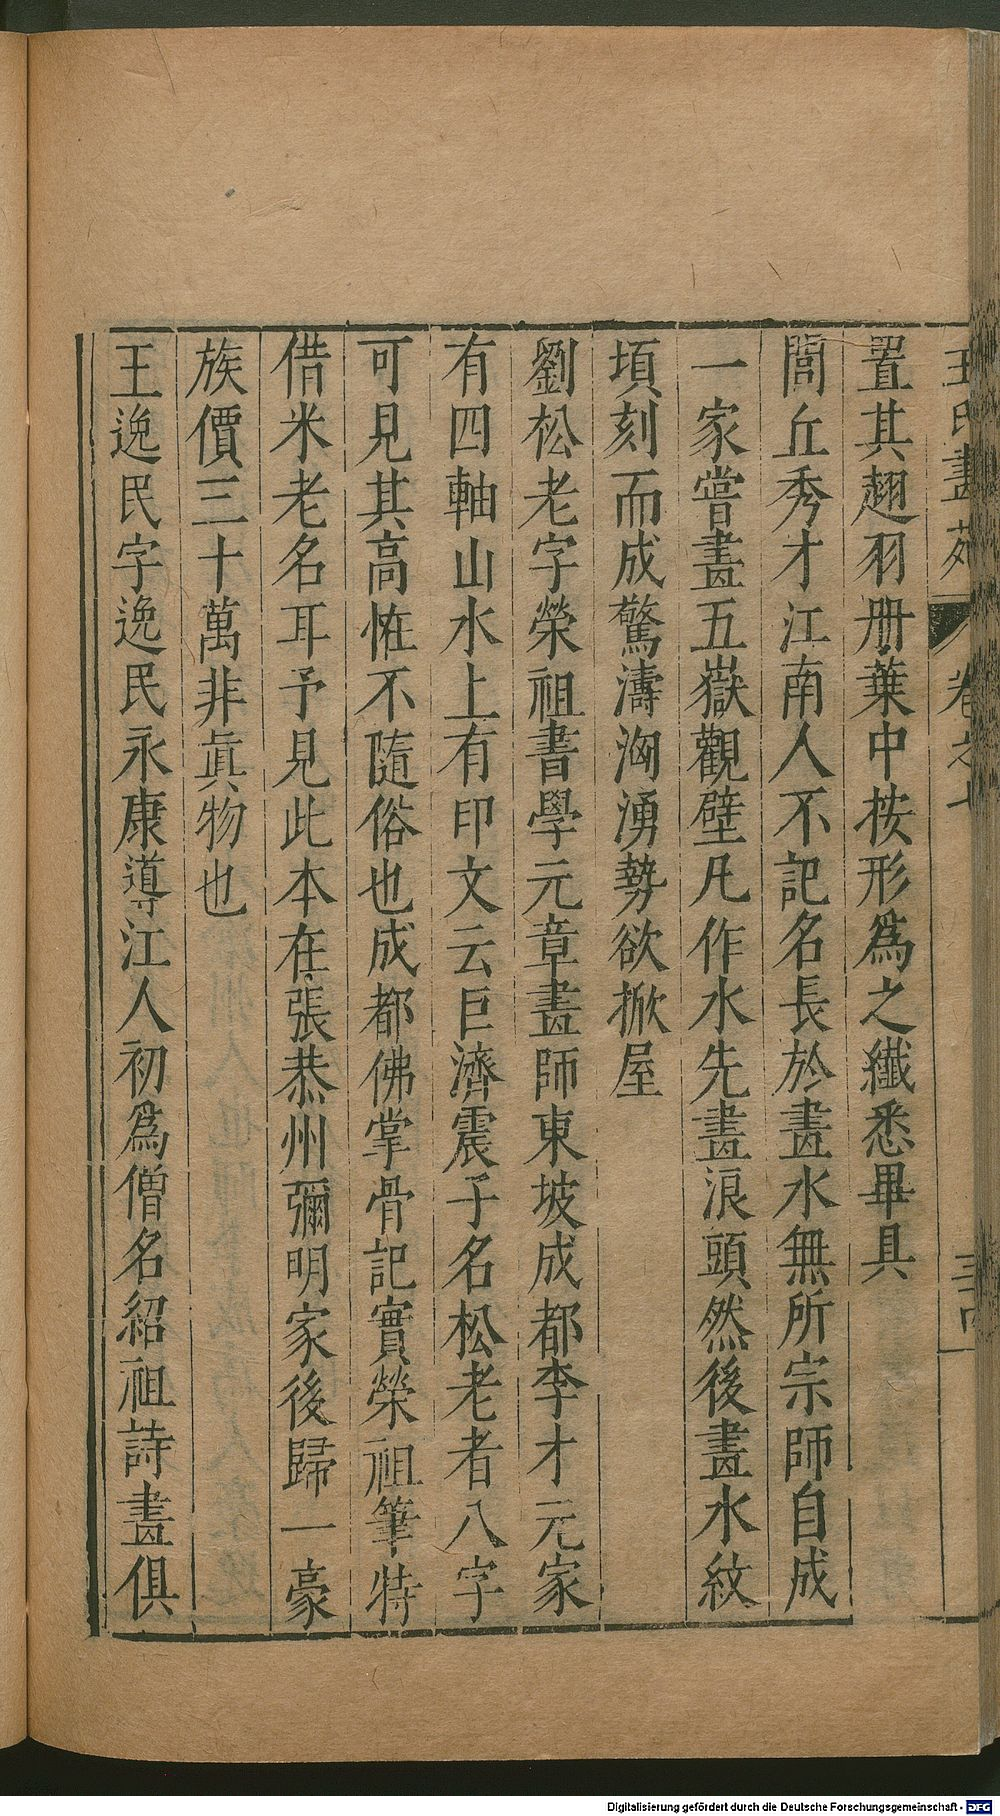 王氏畫苑 卷之七 三四
置其翅羽册葉中按形爲之纖悉畢具
閭丘秀才江南人不記名長於畫水無所宗師自成
一家嘗畫五嶽觀壁凡作水先畫浪頭然後畫水紋
頃刻而成驚濤洶湧勢欲掀屋
劉松老字榮祖書學元章畫師東坡成都李才元家
有四軸山水上有印文云巨濟震子名松老者八字
可見其高恠不隨俗也成都佛掌骨記實榮祖筆特
借米老名耳予見此本在張恭州彌明家後歸一豪
族價三十萬非眞物也
王逸民字逸民永康導江人初爲僧名紹祖詩畫俱
Digitalisierung gefördert durch die Deutsche Forschungsgemeinschaft - DFG